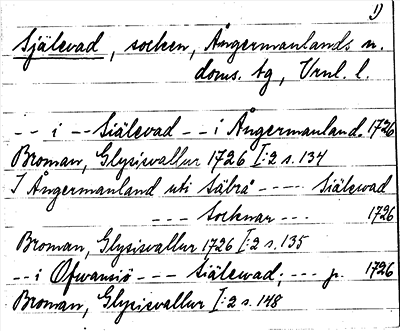 1)
Själevad, socken, Ångermanlands n.
doms. tg, Vrnl. l.
-- i -- Siälevad -- i Ångermanland. 1726
Broman, Glysisvallur 1726 I:2 s. 134
I Ångermanland uti Säbrå ---- Siälevad
--- Socknar --- 1726
Broman, Glysisvallur 1726 I:2 s. 135
-- i Ofwansiö --- Siälewad; --- p. 1726
Broman, Glysisvallur I:2 s. 148